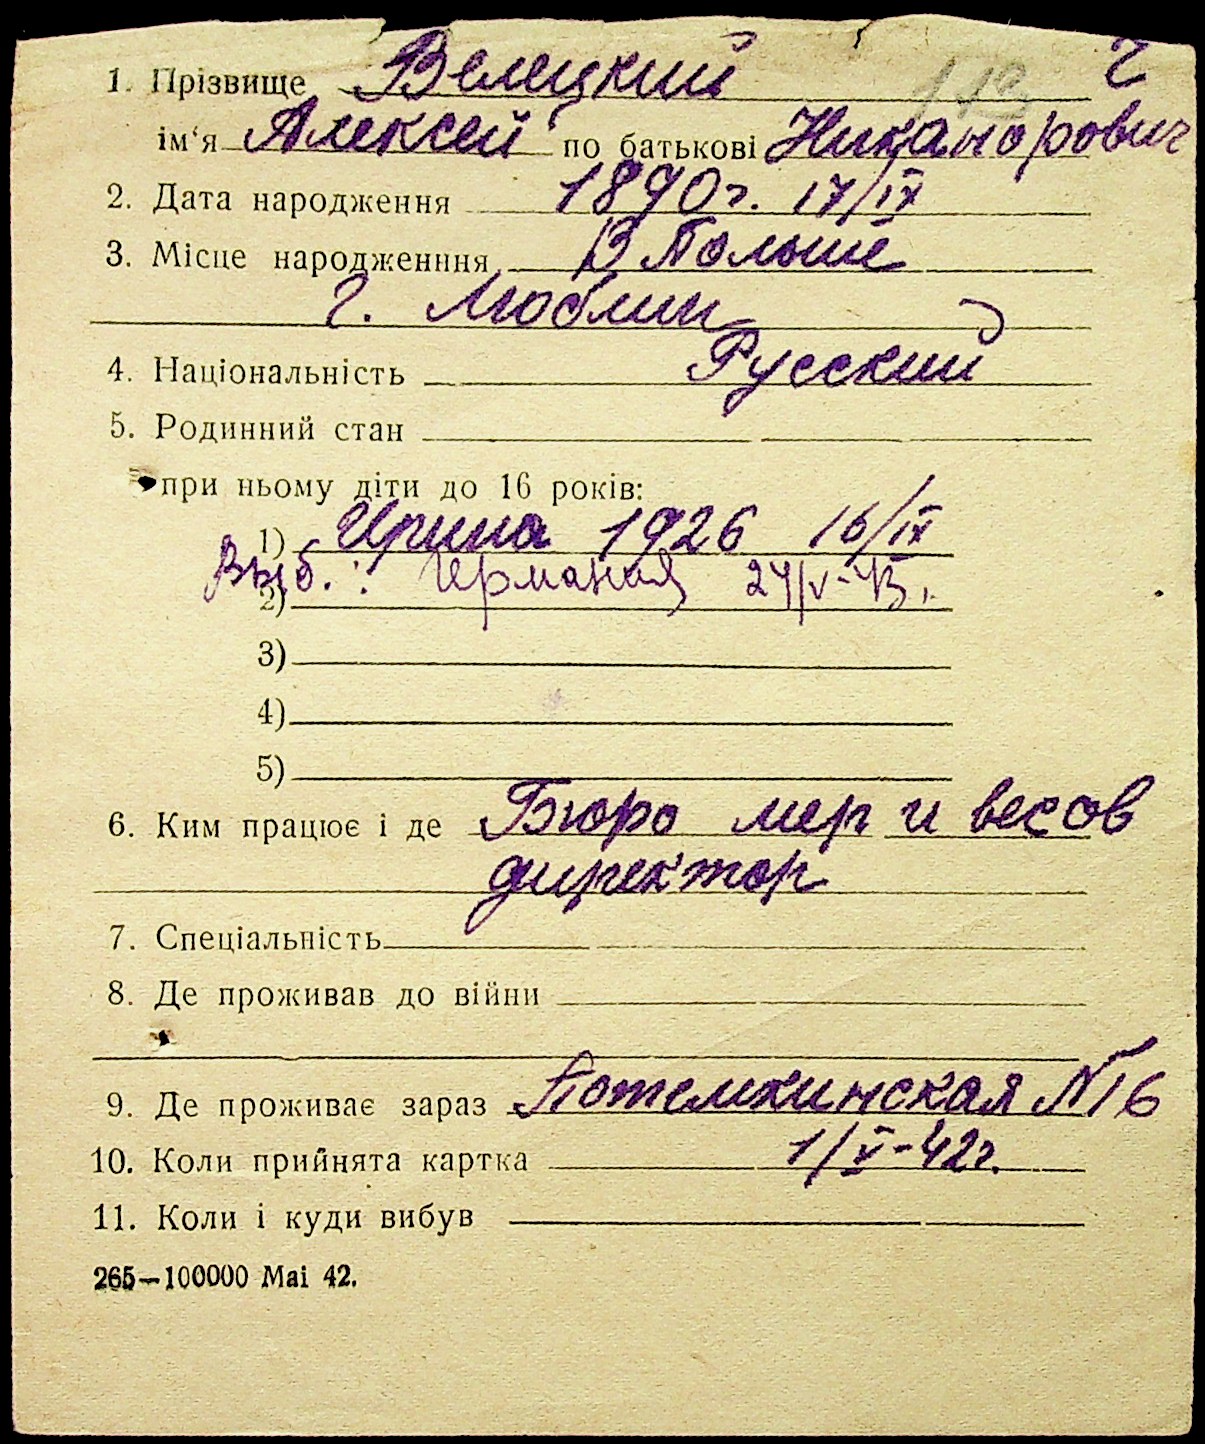 1. Прізвище Велецкий
ім‘я Алексей по батькові Никанорович
2. Дата народження 1890г. 17/IX
3. Місце народженння В Польше
г. Люблин
4. Національність Русский
5. Родинний стан
при ньому діти до 16 років:
1) Ирина 1926 16/IX
Выб.: Германия 24/V-43 г.
2)
3)
4)
5)
6. Ким працює і де Бюро мер и весов
директор
7. Спеціальність
8. Де проживав до війни
9. Де проживає зараз Потемкинская №16
10. Коли прийнята картка 1/V-42г.
11. Коли і куди вибув
265—100000 Mai 42.